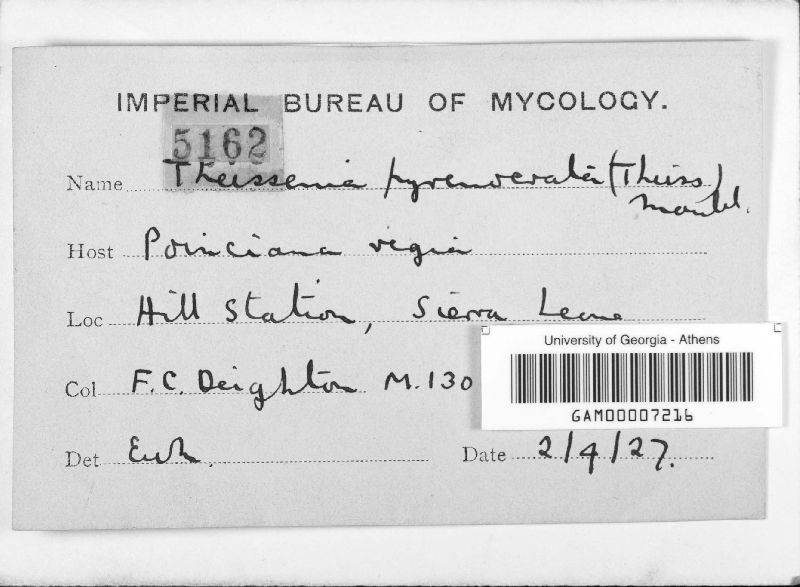 IMPERIAL BUREAU OF MYCOLOGY.
5162
Name Theissenia pyrenocrata (Theiss)
Maubl.
Host Poinciana regia
Loc Hill Station, Sierra Leone
Col F.C. Deighton M.130
University of Georgia - Athens
GAM00007216
Det
Date 2/4/27.